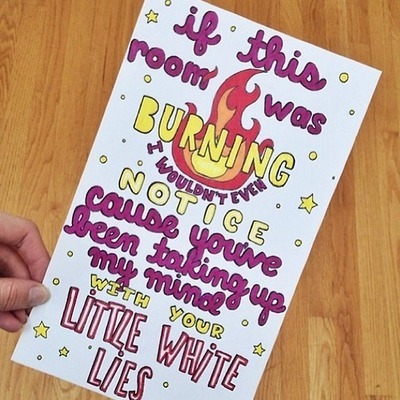 if this
room was
BURNING
I WOULDN'T EVEN
NOTICE
cause you've
been taking up
my mind
WITH YOUR
LITTLE WHITE
LIES